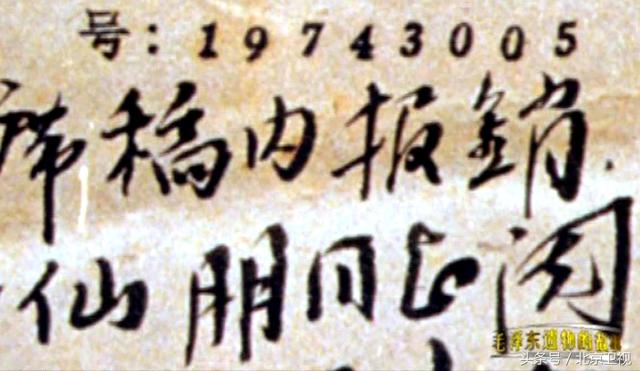 号：19743005
席稿内报銷.
仙朋同志阅
毛泽东遗物的故事
头条号／北京卫视